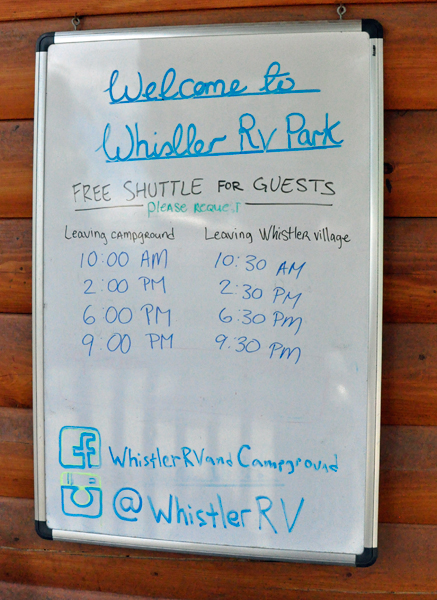 Welcome to
Whistler RV Park
FREE SHUTTLE FOR GUESTS
please request
Leaving campground Leaving Whistler village
10:00 AM 10:30 AM
2:00 PM 2:30 PM
6:00 PM 6:30 PM
9:00 PM 9:30 PM
f WhistlerRVandCampground
@WhistlerRV